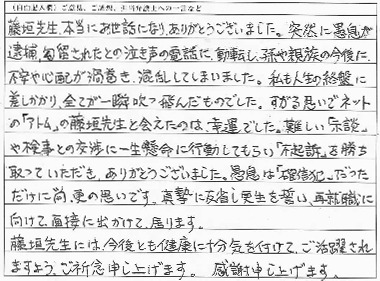 (自由記入欄)ご意見、ご感想、担当弁護士への一言など
藤垣先生、本当にお世話になり、ありがとうございました。突然に愚息が
逮捕、勾留されたとの泣き声の電話に、動転し、孫や親族の今後に、
不安や心配が渦巻き、混乱してしまいました。私も人生の終盤に
差しかかり、全てが一瞬吹っ飛んだものでした。すがる思いでネット
の「アトム」の藤垣先生と会えたのは、幸運でした。難しい「示談」
や検事との交渉に一生懸命に行動してもらい「不起訴」を勝ち
取っていただき、ありがとうございました。愚息は「確信犯」だった
だけに尚、更の思いです。真摯に反省し更生を誓い、再就職に
向けて、面接に出かけて、居ります。
藤垣先生には、今後とも健康に十分気を付けて、ご活躍され
ますよう、ご祈念申し上げます。 感謝申し上げます。